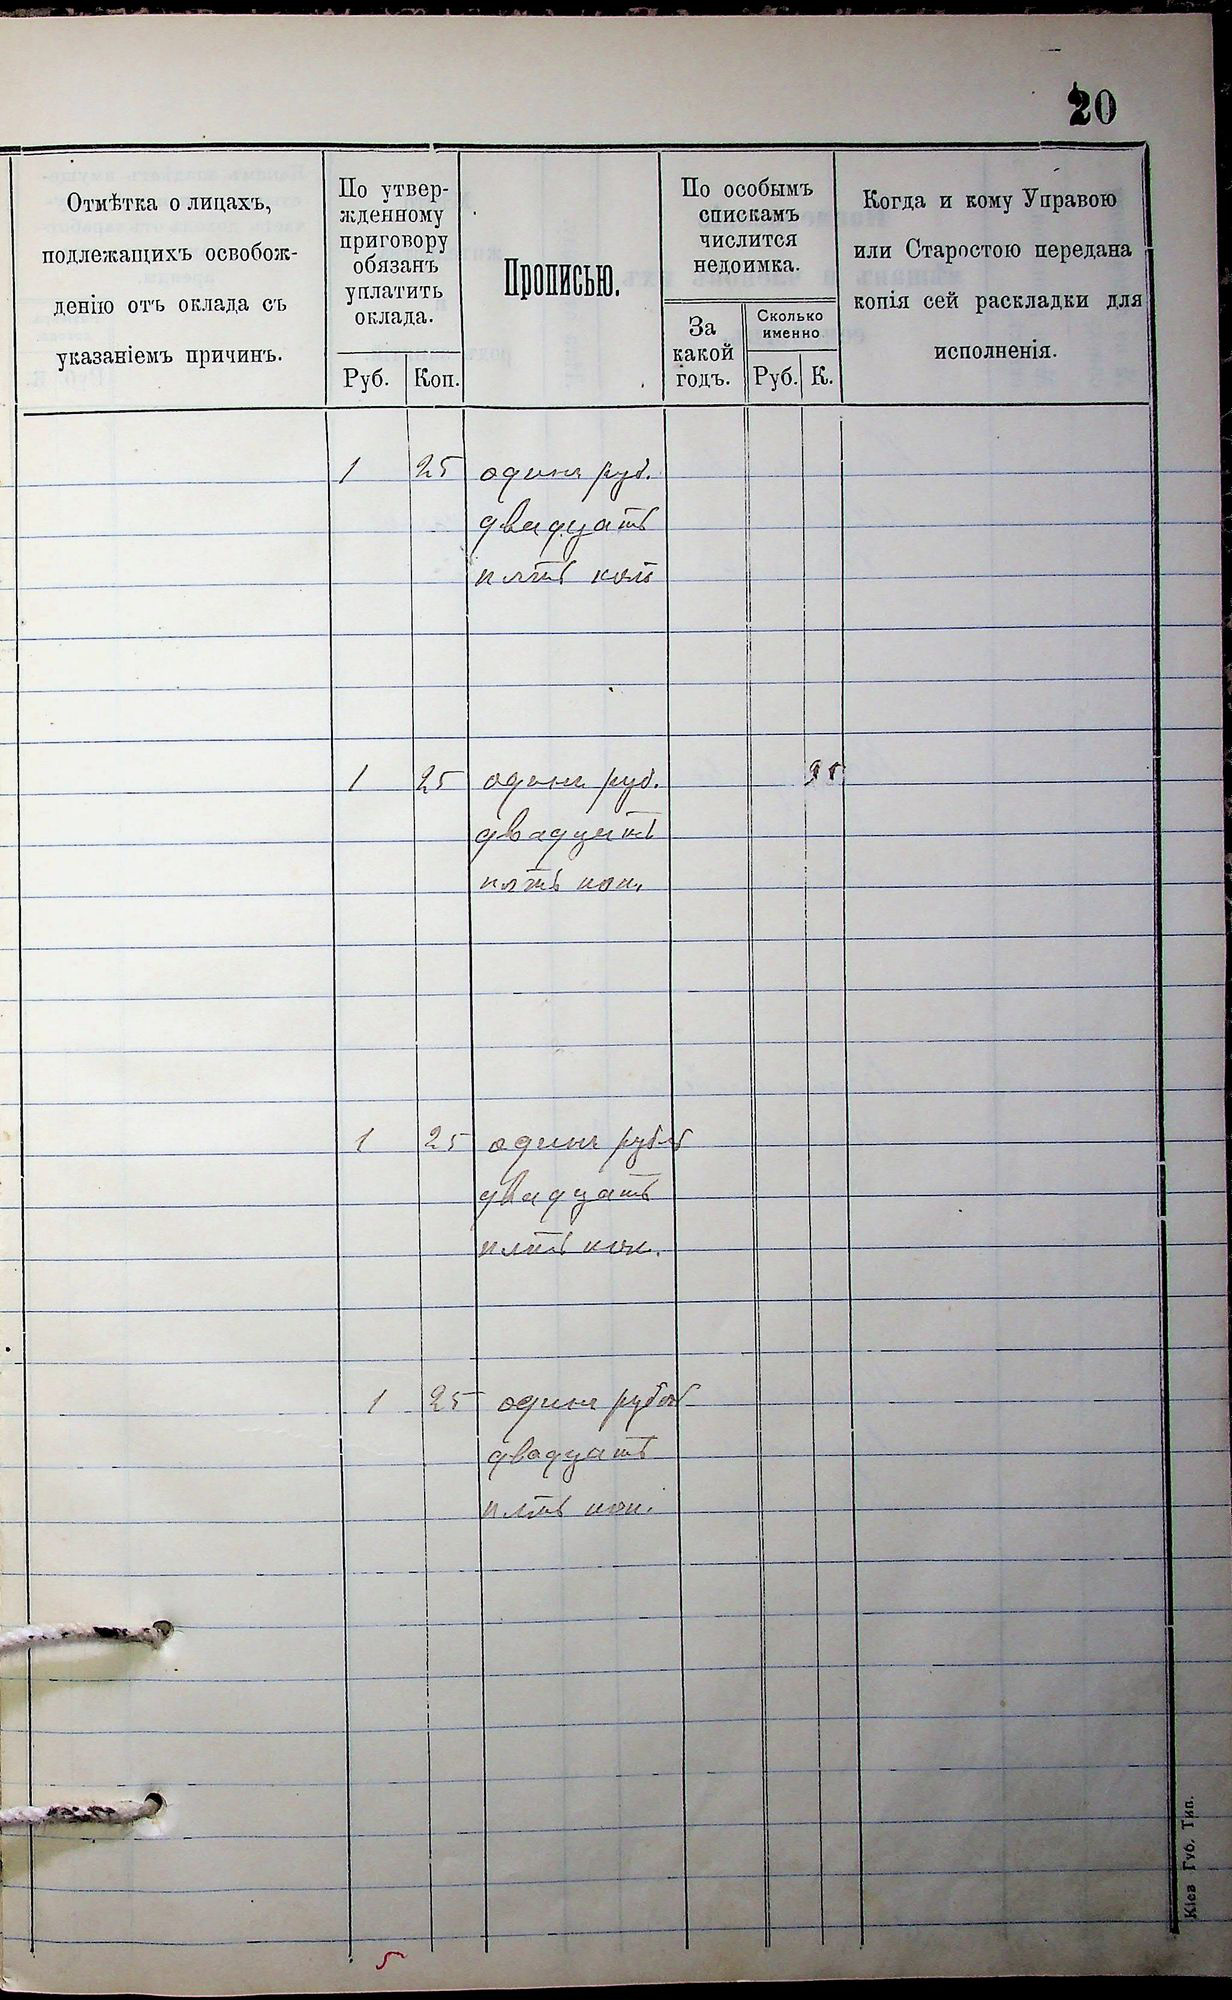 20
Отмѣтка о лицахъ,
подлежащихъ освобож-
денію отъ оклада съ
указаніемъ причинъ.
По утвер-
жденному
приговору
обязанъ
уплатить
оклада.
Руб. Коп.
Прописью.
По особымъ
спискамъ
числится
недоимка.
За
какой
годъ.
Сколько
именно
Руб. К.
Когда и кому Управою
или Старостою передана
копія сей раскладки для
исполненія.
1 25 одинъ руб.
двадцать
пять коп
1 25 одинъ руб.
двадцать
пять коп.
1 25 одинъ рубль
двадцать
пять коп.
1 25 одинъ рубль
двадцать
пять коп.
5
Кіев Губ. Тип.